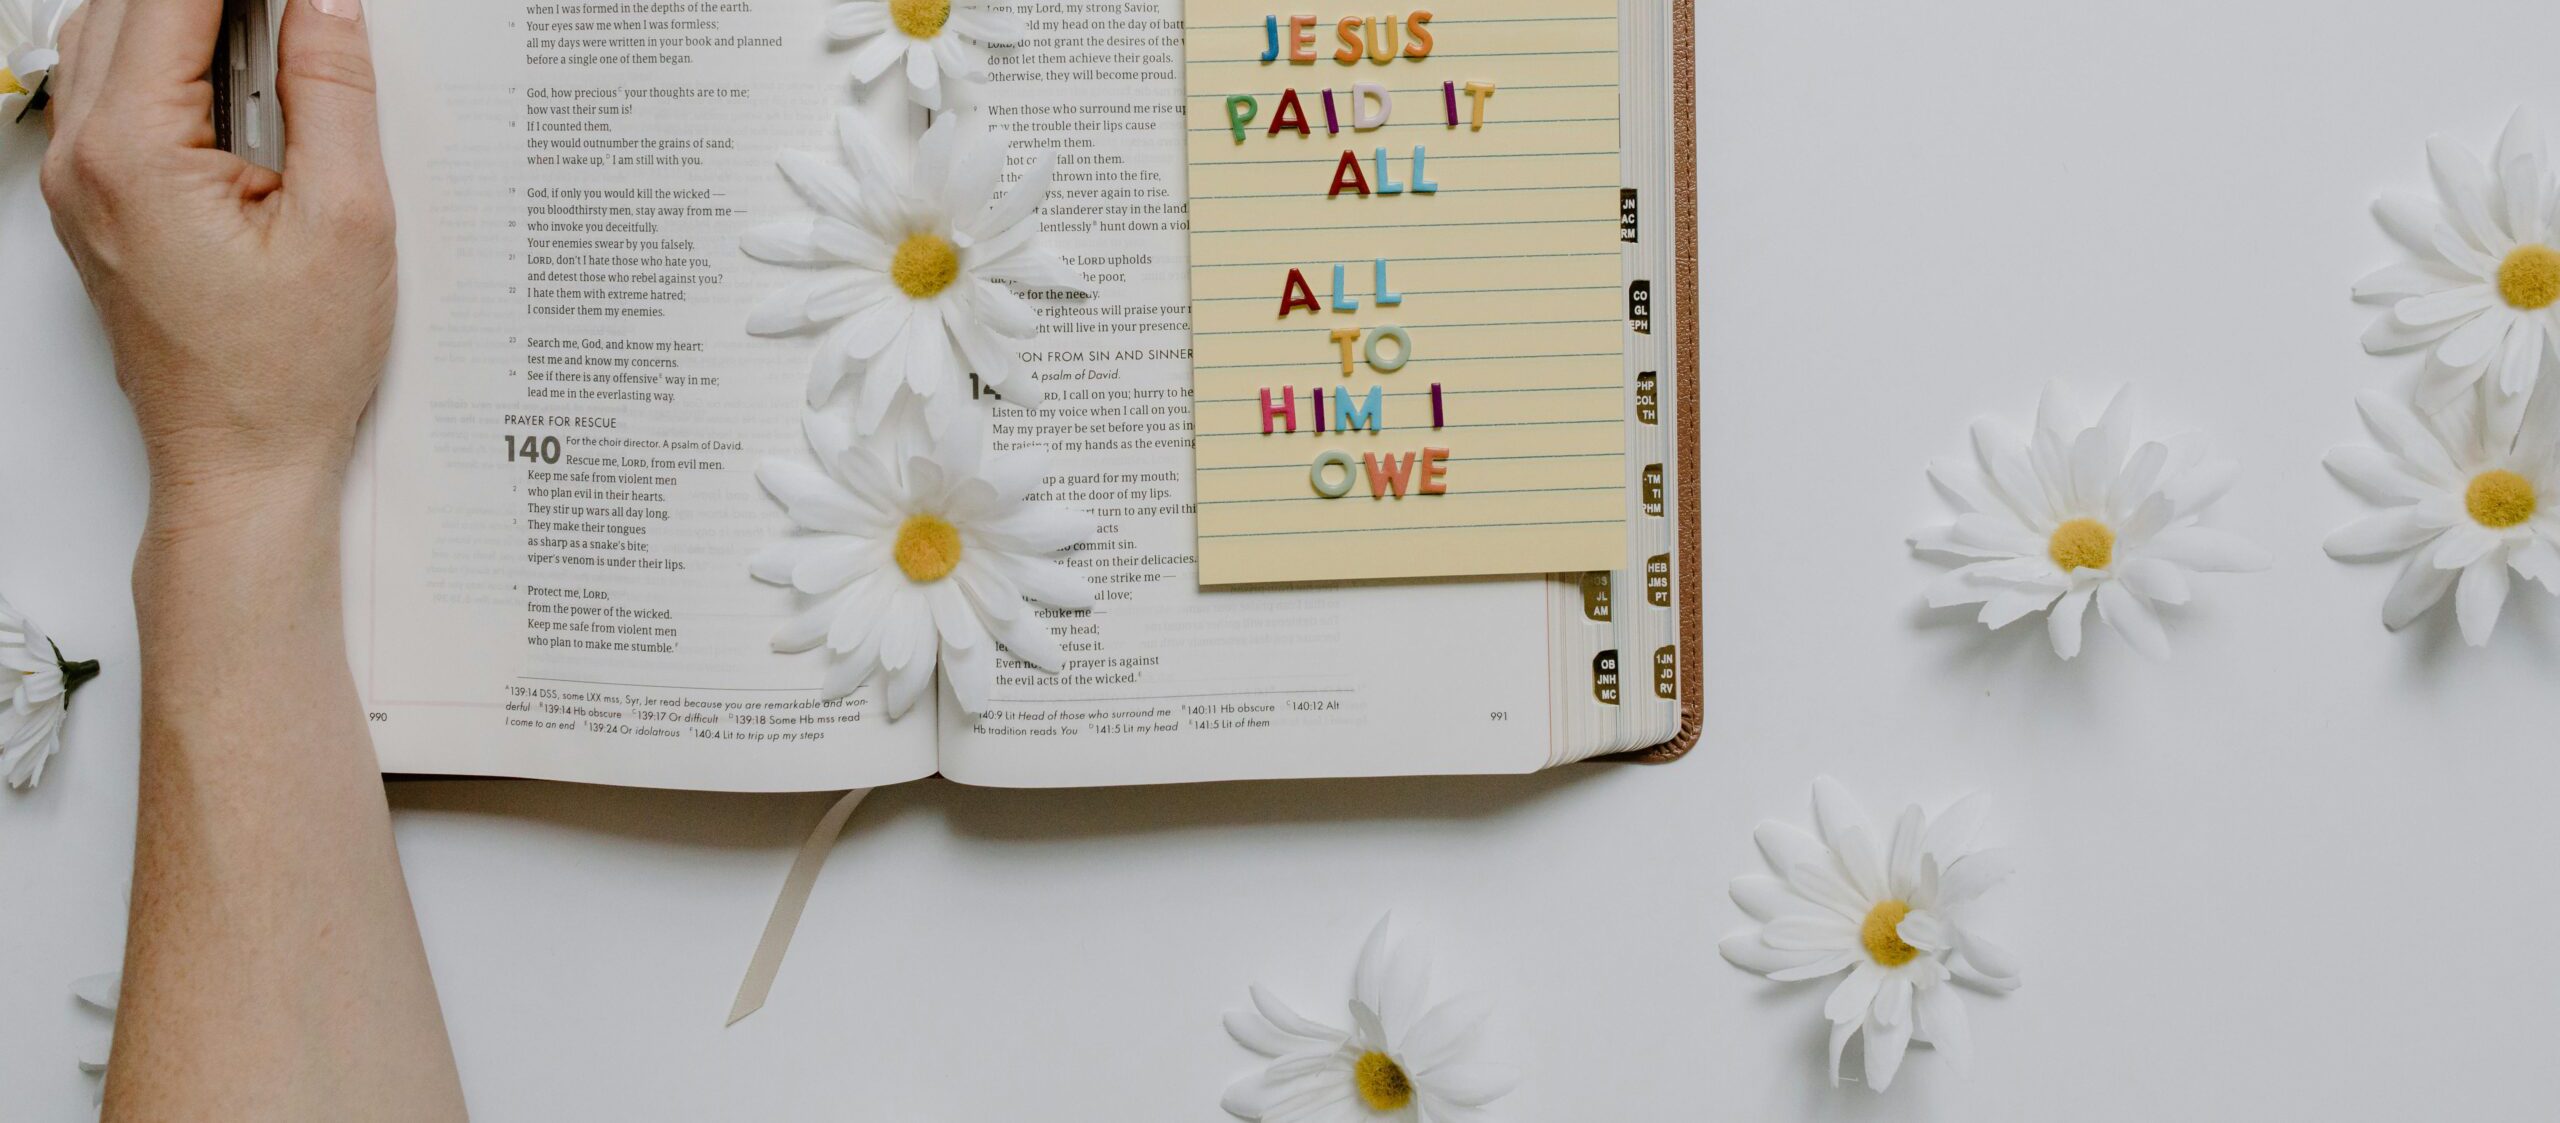 when I was formed in the depths of the earth.
16 Your eyes saw me when I was formless;
all my days were written in your book and planned
before a single one of them began.
17 God, how precious C your thoughts are to me;
how vast their sum is!
18 If I counted them,
they would outnumber the grains of sand;
when I wake up, D I am still with you.
19 God, if only you would kill the wicked —
you bloodthirsty men, stay away from me —
20 who invoke you deceitfully.
Your enemies swear by you falsely.
21 LORD, don't I hate those who hate you,
and detest those who rebel against you?
22 I hate them with extreme hatred;
I consider them my enemies.
23 Search me, God, and know my heart;
test me and know my concerns.
24 See if there is any offensive E way in me;
lead me in the everlasting way.
PRAYER FOR RESCUE
140 For the choir director. A psalm of David.
Rescue me, LORD, from evil men.
Keep me safe from violent men
2 who plan evil in their hearts.
They stir up wars all day long.
3 They make their tongues
as sharp as a snake's bite;
viper's venom is under their lips.
4 Protect me, LORD,
from the power of the wicked.
Keep me safe from violent men
who plan to make me stumble. F
A 139:14 DSS, some LXX mss, Syr, Jer read because you are remarkable and won-
derful B 139:14 Hb obscure C 139:17 Or difficult D 139:18 Some Hb mss read
I come to an end E 139:24 Or idolatrous F 140:4 Lit to trip up my steps
990
LORD, my Lord, my strong Savior,
my head on the day of
8 LORD, do not grant the desires of the
do not let them achieve their goals.
Otherwise, they will become proud.
9 When those who surround me rise up
may the trouble their lips cause
overwhelm them.
hot fall on them.
thrown into the fire,
never again to rise.
a slanderer stay in the land
hunt down a
the LORD upholds
the poor,
for the needy.
righteous will praise your
will live in your presence.
FROM SIN AND
A psalm of David.
I call on you; hurry to
Listen to my voice when I call on you.
May my prayer be set before you as
the raising of my hands as the evening
up a guard for my mouth;
at the door of my lips.
turn to any evil
acts
commit sin.
feast on their delicacies.
one strike me —
love;
rebuke me —
my head;
let refuse it.
Even my prayer is against
the evil acts of the wicked. E
140:9 Lit Head of those who surround me B 140:11 Hb obscure C 140:12 Alt
Hb tradition reads You D 141:5 Lit my head E 141:5 Lit of them
991
JESUS
PAID IT
ALL
ALL
TO
HIM I
OWE
JN
AC
RM
CO
GL
EPH
PHP
COL
TH
TM
TI
PHM
HEB
JMS
PT
1JN
JD
RV
JL
AM
OB
JNH
MC